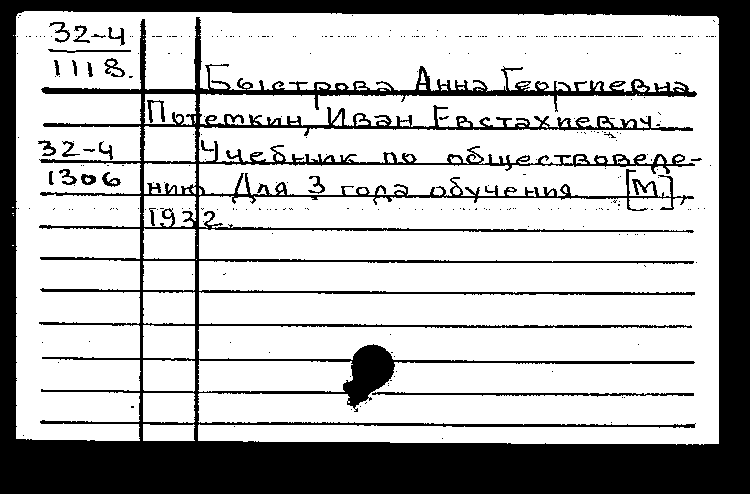 32-4
1118.
Быстрова, Анна Георгиевна
Потемкин, Иван Евстахиевич.
32-4
Учебник по обществоведе-
1306
нию. Для 3 года обучения [М.],
1932.